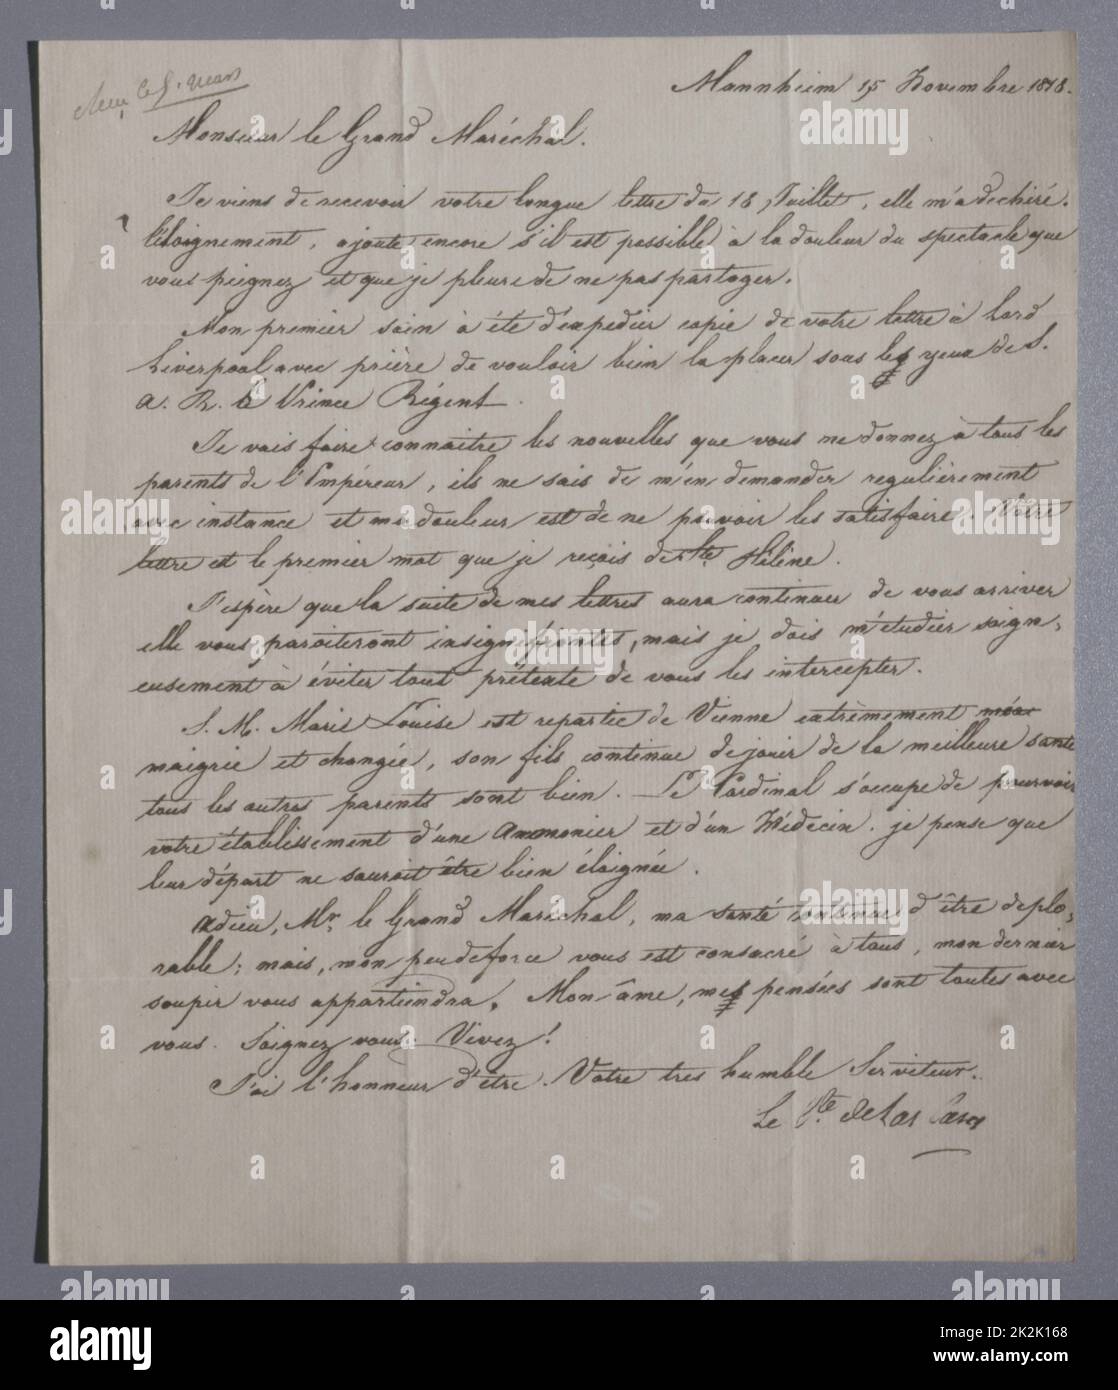 Mannheim 15 Novembre 1818.
Monsieur le Grand Maréchal.
Je viens de recevoir votre longue lettre du 18 Juillet, elle m'a dechiré.
l'éloignement, ajoute encore s'il est possible à la douleur du spectacle que
vous peignez et que je pleure de ne pas partager.
Mon premier soin à été d'expedier copie de votre lettre à Lord
Liverpool avec prière de vouloir bien la placer sous les yeux de S.
A. R. le Prince Régent.
Je vais faire connaitre les nouvelles que vous me donnez à tous les
parents de l'Empéreur, ils ne sais de m'en demander regulièrement
avec instance et ma douleur est de ne pouvoir les satisfaire. Votre
lettre est le premier mot que je reçois de Ste Hélène.
J'espère que la suite de mes lettres aura continuer de vous arriver
elle vous paroiteront insignifiantes, mais je dois m'étudier soign,
eusement à éviter tout prétexte de vous les intercepter.
S. M. Marie Louise est repartie de Vienne extrèmement
maigrie et changée, son fils continue de jouir de la meilleure santé
tous les autres parents sont bien. Le Cardinal s'occupe de pourvoir
votre établissement d'une Ammonier et d'un Médecin. je pense que
leur départ ne sauroit être bien éloignée.
Adieu, Mr. le Grand Maréchal, ma santé continue d'être deplo,
rable; mais, mon peu de force vous est consacré à tous, mon dernier
soupir vous appartiendra. Mon âme, mes pensées sont toutes avec
vous. Soignez vous. Vivez!
J'ai l'honneur d'être. Votre tres humble Serviteur.
Le Cte. de Las Cases
alamy
Image ID: 2K2K168
www.alamy.com